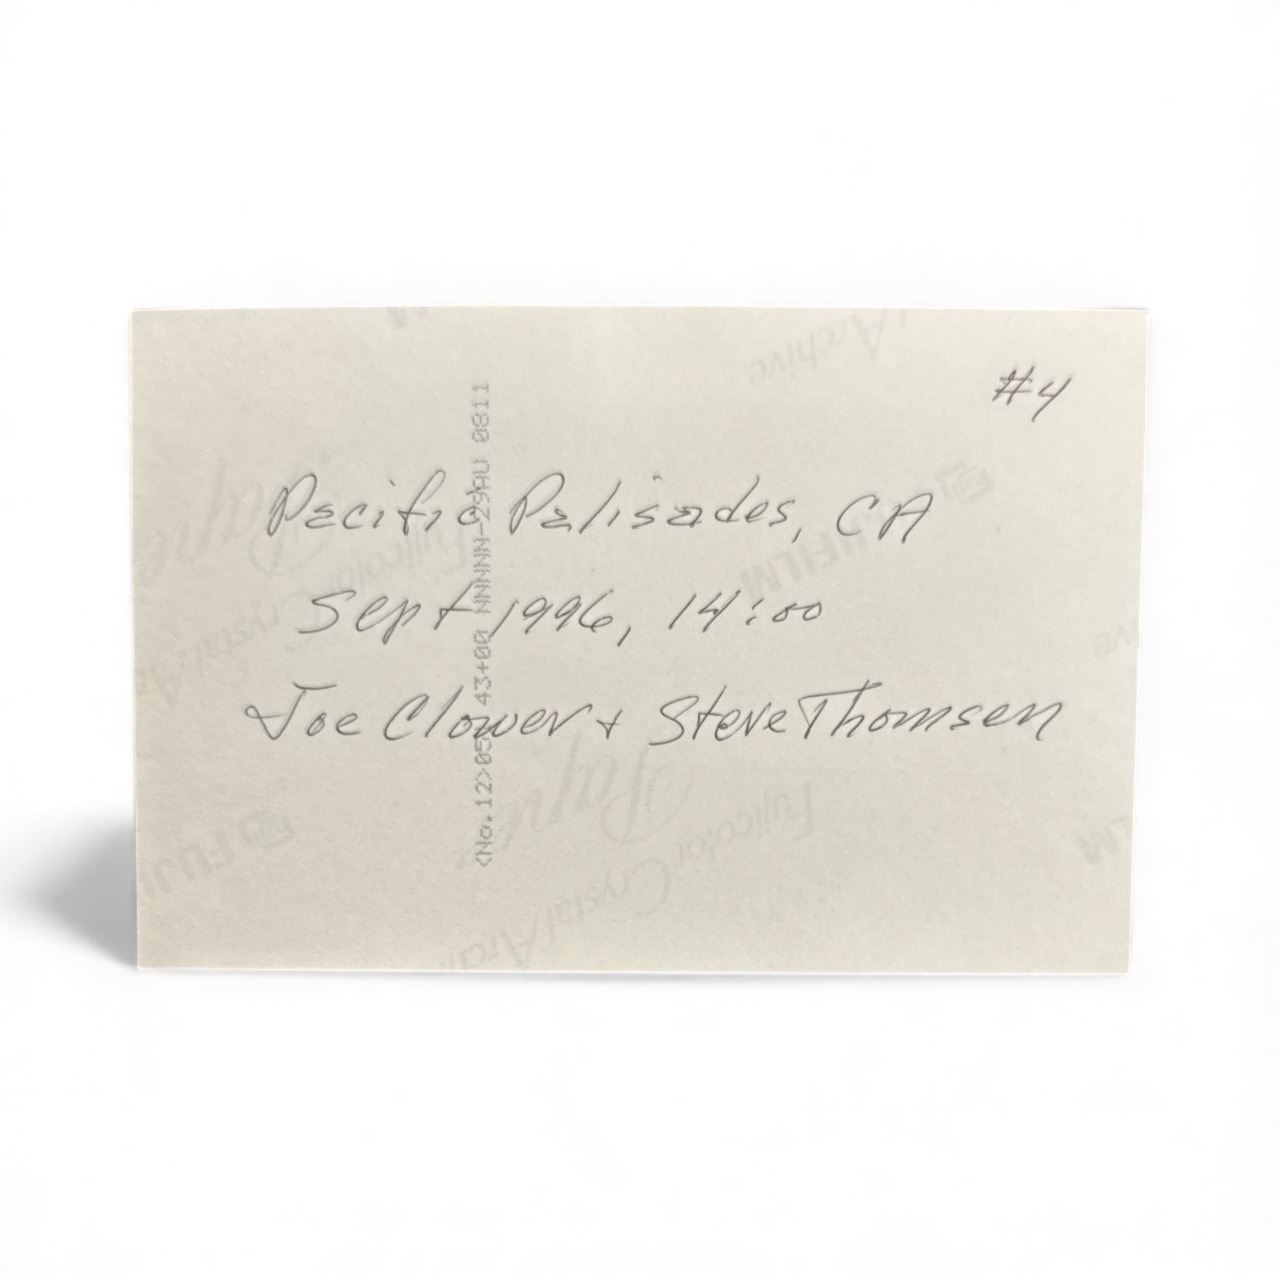 #4
Pacific Palisades, CA
Sept 1996, 14:00
Joe Clower + Steve Thomsen
<No.12>05 43+00 NNNNN-29AU 0811
Archive
FUJIFILM
Fujicolor
Crystal Archive